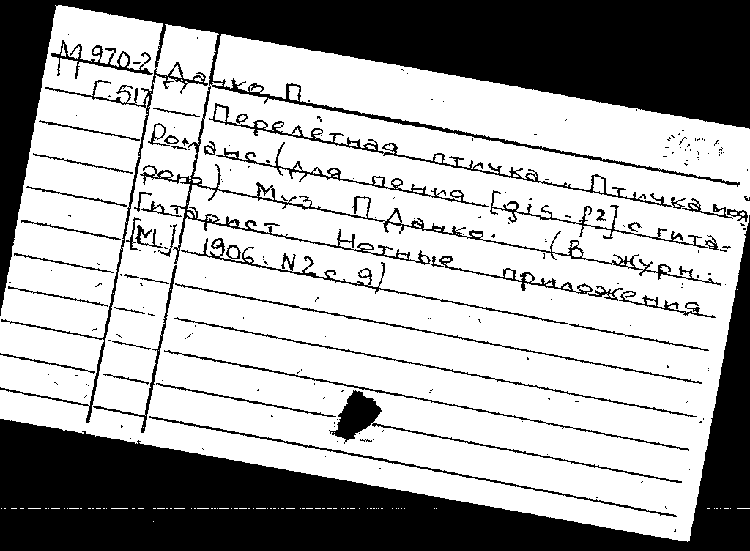 М 970-2 Данко, П.
Г.517 Перелётная птичка. „Птичка моя"
Романс. (для пения [gis-f²] с гита-
рою) Муз. П Данко. (В журн.:
Гитарист. Нотные приложения
[М.] 1906. N2 с. 9)